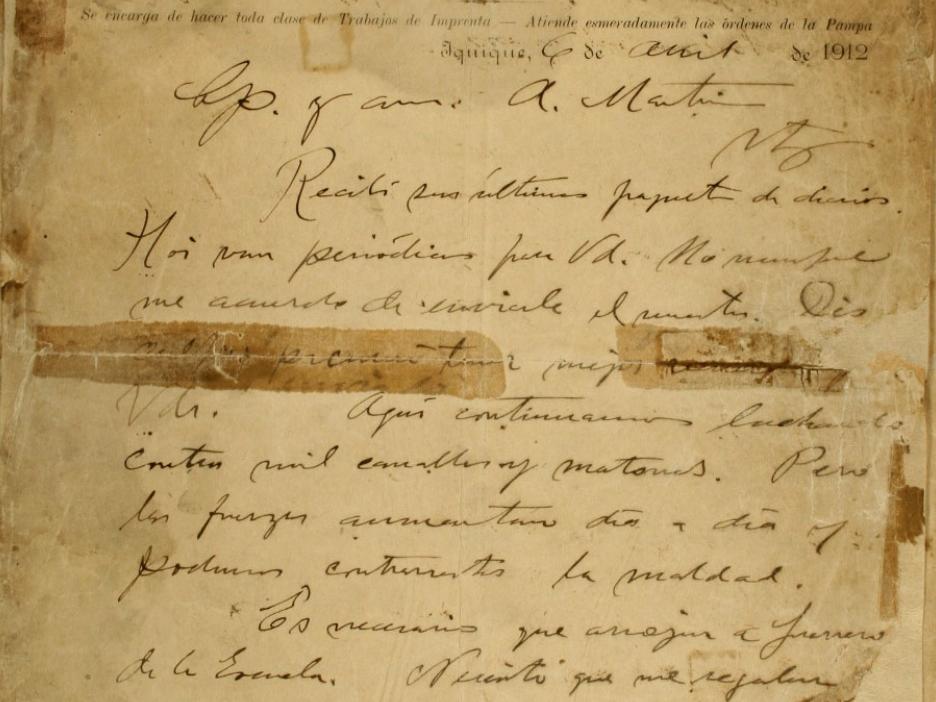 Se encarga de hacer toda clase de Trabajos de Imprenta — Atiende esmeradamente las órdenes de la Pampa
Iquique, 6 de abril de 1912
Cp. y am. A. Martin
Recibí sus últimos paquet de diarios.
Hoi van periódicos para Vd. No
me acuerdo de enviarle el nuestro.
mejor
Vds. Aquí continuamos luchando
contra mil canallas y matones. Pero
las fuerzas aumentan dia a dia y
podemos contrarrestar la maldad.
Es necesario que arrojen a Guerrero
de la Escuela. Necesito que me regalen